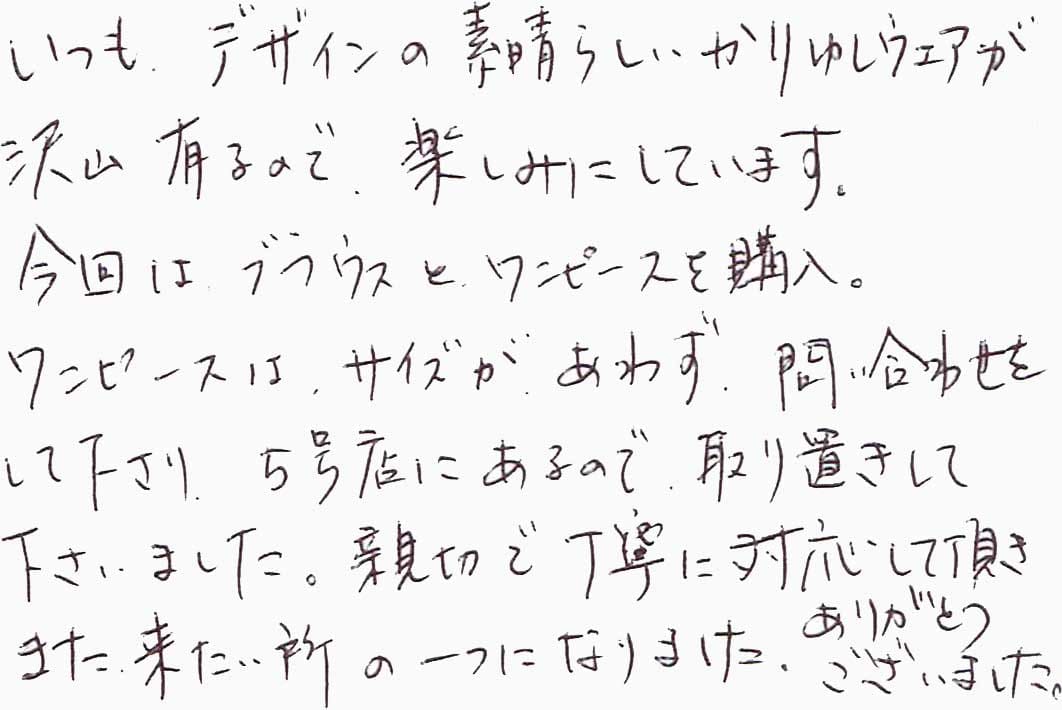 いつも、デザインの素晴らしいかりゆしウェアが
沢山有るので、楽しみにしています。
今回は、ブラウスと、ワンピースを購入。
ワンピースは、サイズが、あわず、問い合わせを
して下さり、5号店にあるので、取り置きして
下さいました。親切で丁寧に対応して頂き
また、来たい所の一つになりました、ありがとう
ございました。